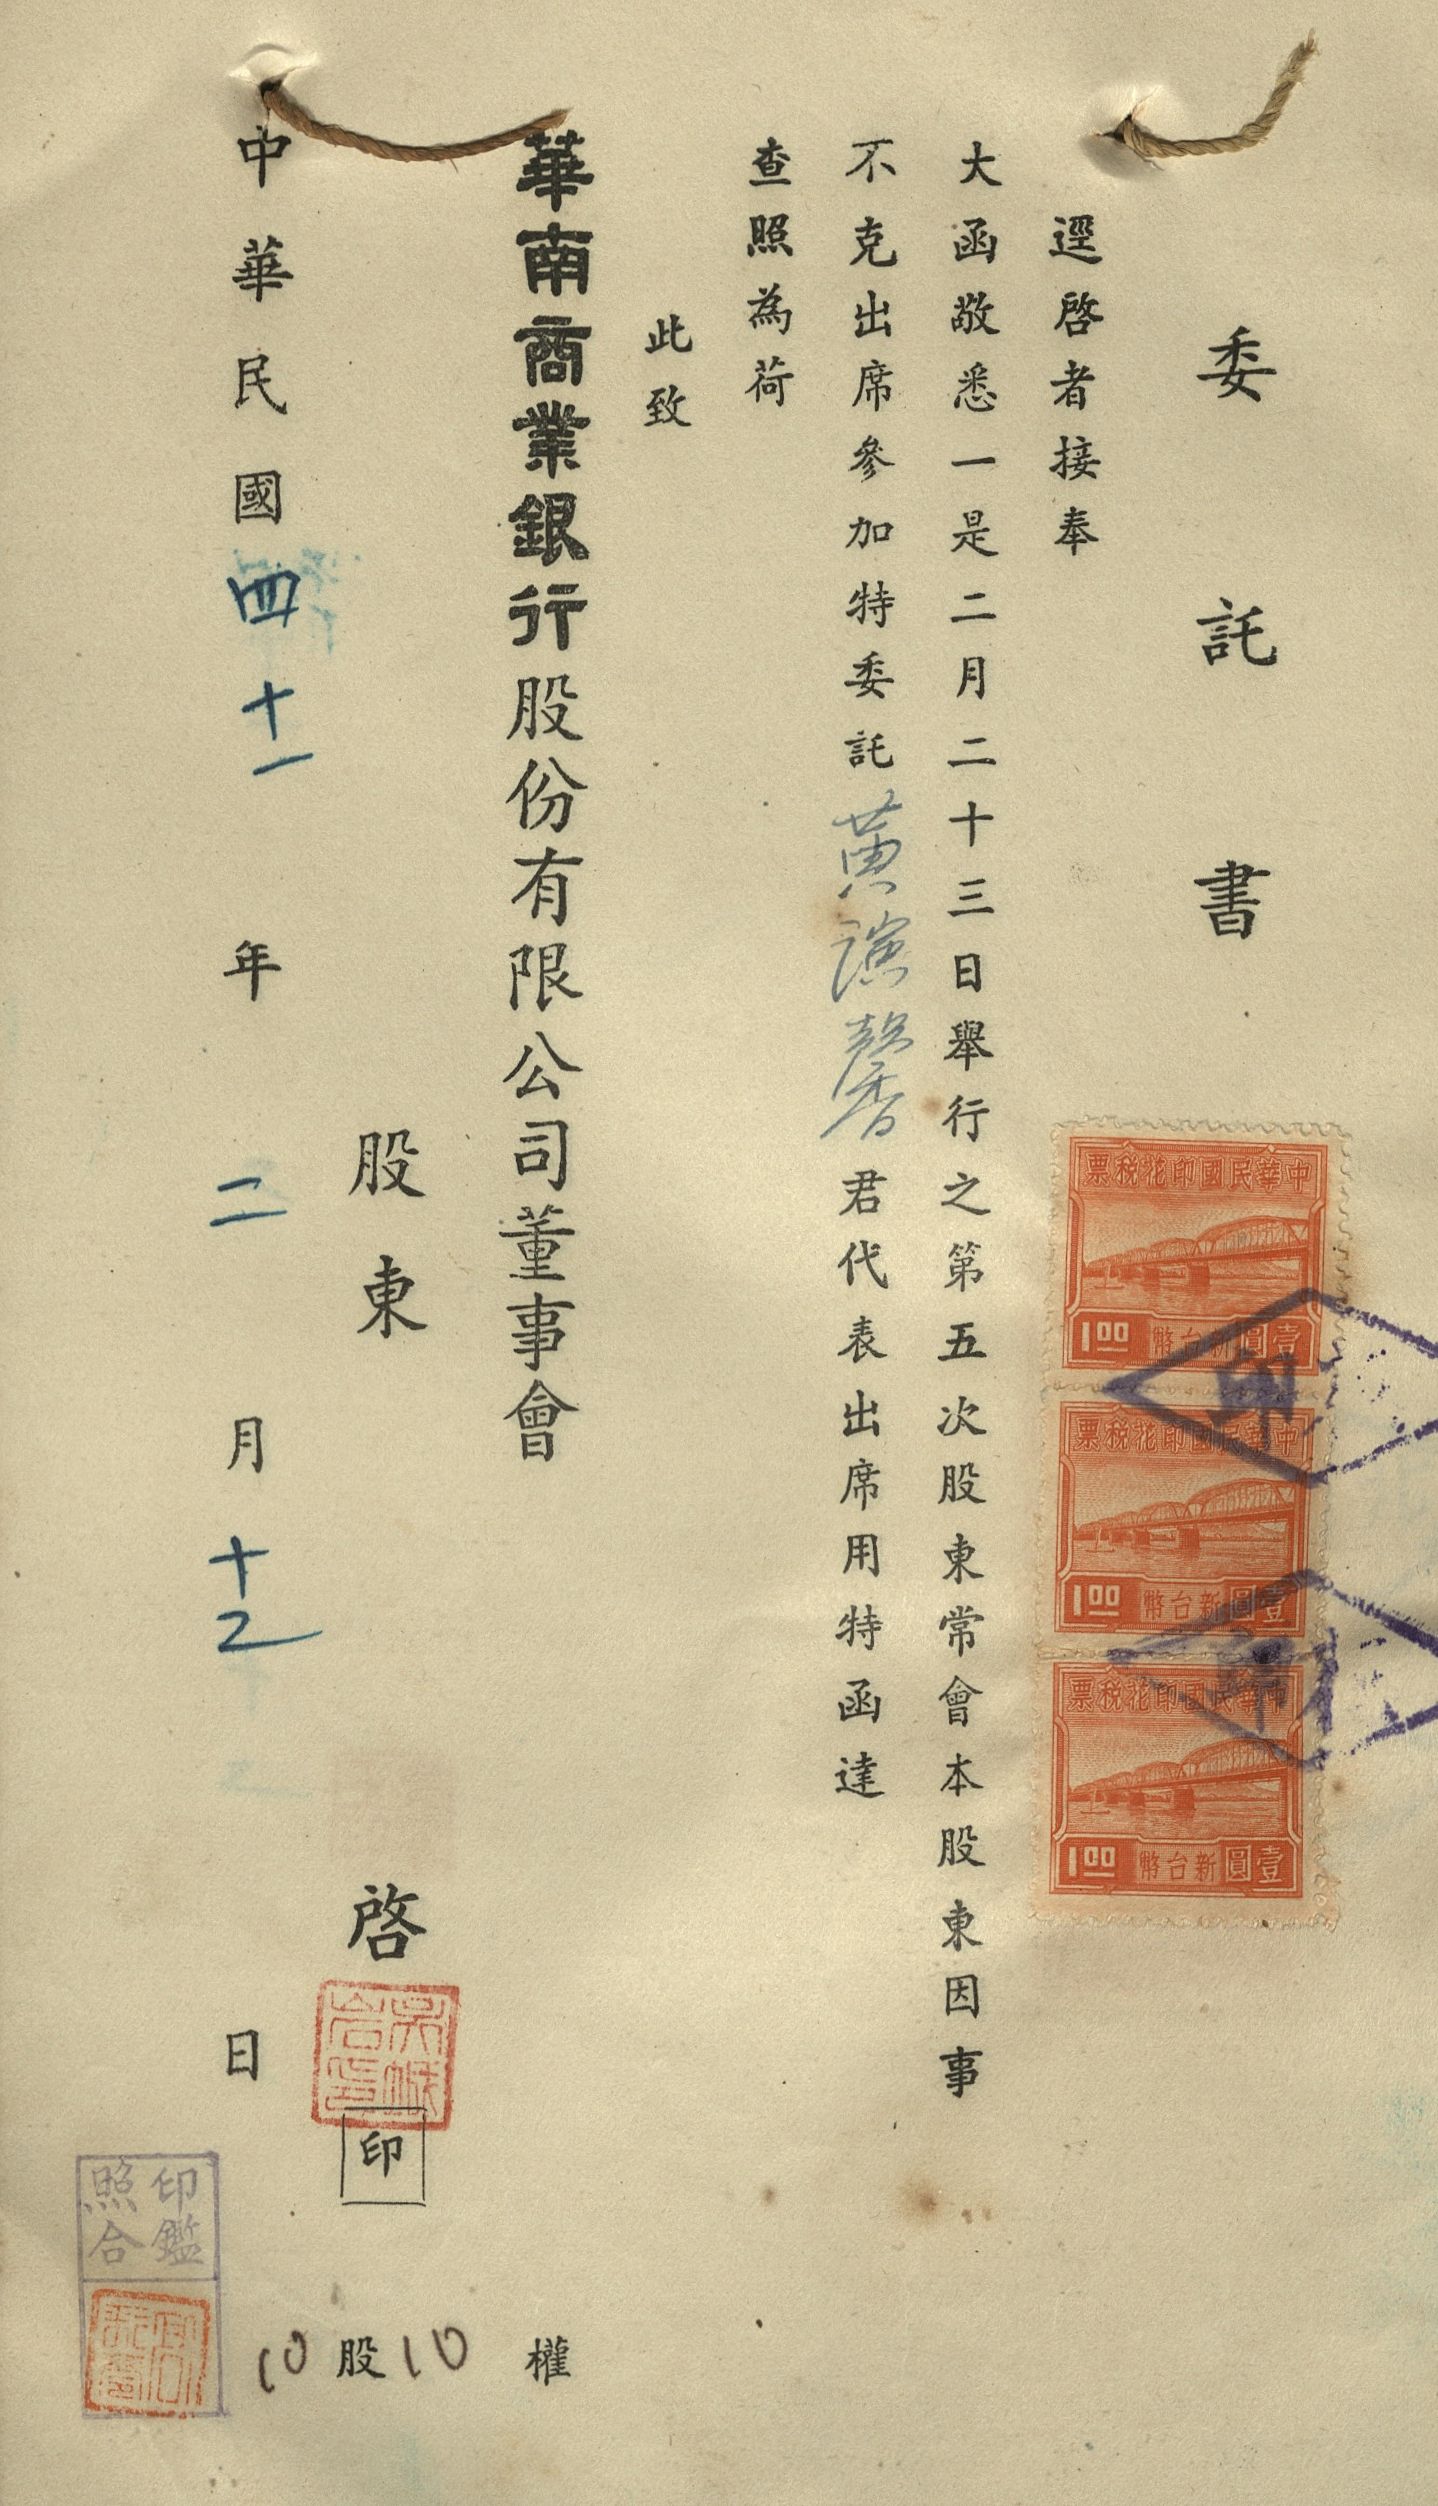 委託書
逕啓者接奉
大函敬悉一是二月二十三日舉行之第五次股東常會本股東因事
不克出席參加特委託黃演馨君代表出席用特函達
查照為荷
此致
華南商業銀行股份有限公司董事會
股東啓
印
10股10權
中華民國四十一年二月十二日
中華民國印花稅票
壹圓新台幣
1.00
中華民國印花稅票
壹圓新台幣
1.00
中華民國印花稅票
壹圓新台幣
1.00
印
印鑑
照合